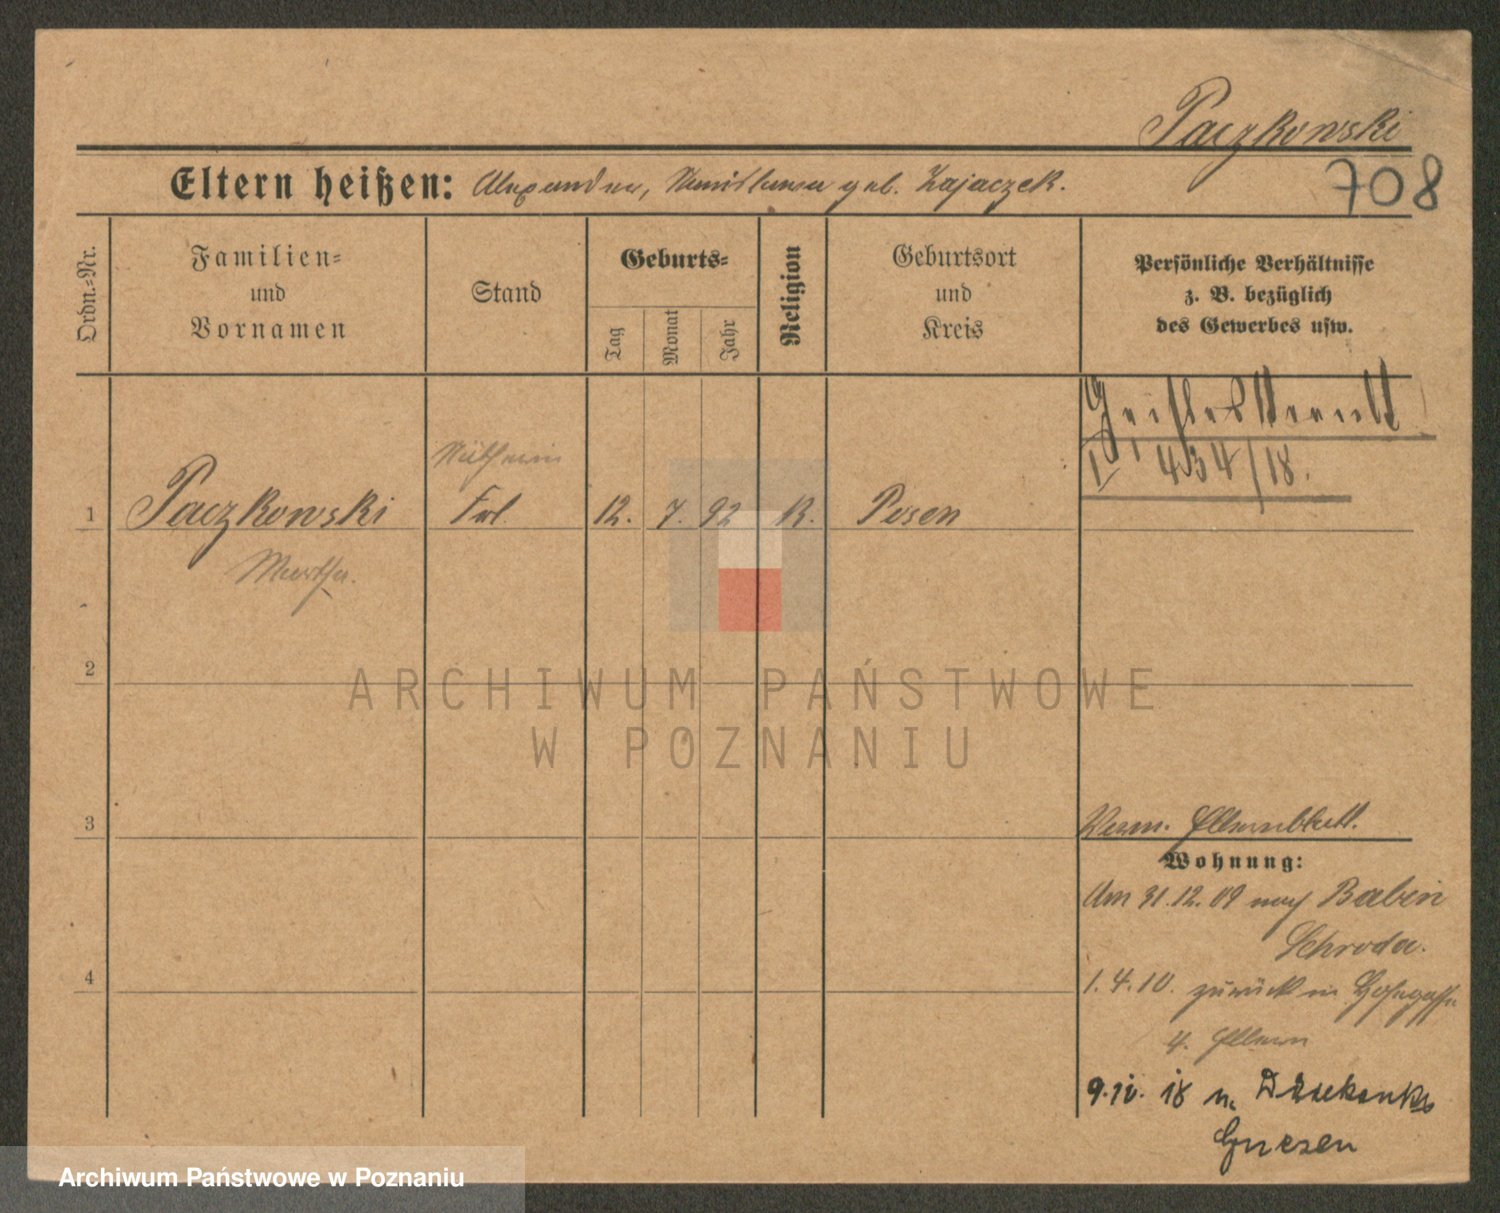 Paczkowski
708
Eltern heißen: Alexander, Stanislawa geb. Zajaczek.
Ordn.-Nr.
Familien-
und
Vornamen
Stand
Geburts-
Tag
Monat
Jahr
Religion
Geburtsort
und
Kreis
Persönliche Verhältnisse
z. B. bezüglich
des Gewerbes usw.
434/18.
Nätherin
1 Paczkowski Frl. 12. 7. 92 K. Posen
Martha.
2
3
Verm. Elternblatt.
Wohnung:
Am 31.12.09 nach Babin
Schroda.
4
1.4.10. zurück in
4. Eltern
9.IV.18 n.
Gnesen
ARCHIWUM PAŃSTWOWE
W POZNANIU
Archiwum Państwowe w Poznaniu